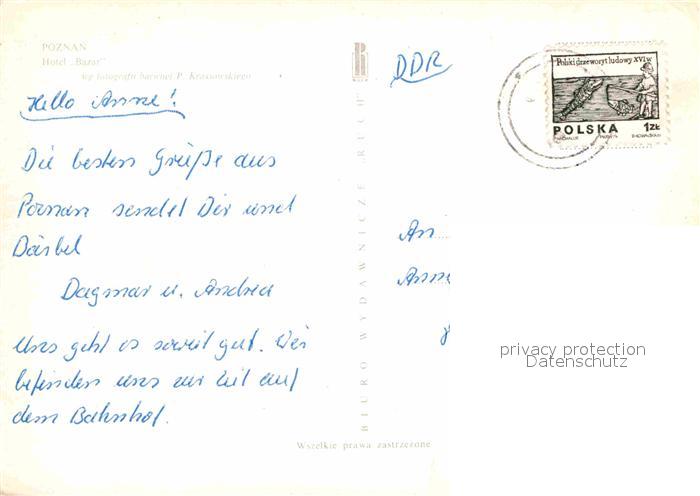 POZNAŃ
Hotel „Bazar”
wg fotografii barwnej P. Krassowskiego
Hello Anne!
Die besten Grüße aus
Poznan sendet Dir und
Bärbel
Dagmar u. Andrea
Uns geht es soweit gut. Wir
befinden uns zur Zeit auf
dem Bahnhof.
BIURO WYDAWNICZE RUCH
Wszelkie prawa zastrzeżone
DDR
Polski drzeworyt ludowy XVI w
POLSKA 1ZŁ
An
Anne
privacy protection
Datenschutz